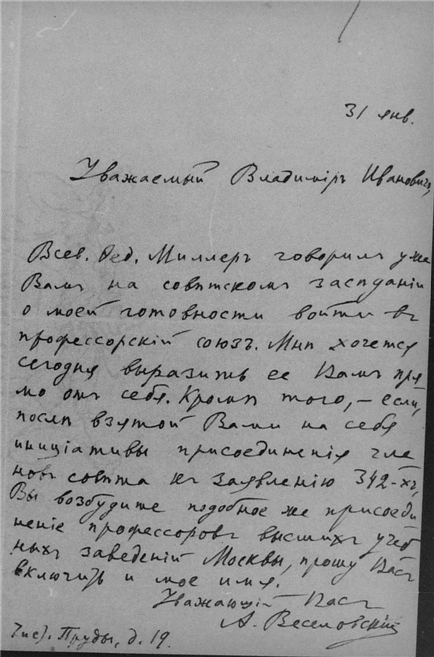 31 янв.
Уважаемый Владиміръ Ивановичъ,
Всев. Фед. Миллеръ говорилъ уже
Вамъ на совѣтскомъ засѣданіи
о моей готовности войти въ
профессорскій союзъ. Мнѣ хочется
сегодня выразить ее Вамъ пря
мо отъ себя. Кромѣ того, – если,
послѣ взятой Вами на себя
иниціативы присоединенія чле
новъ совѣта къ заявленію 342-хъ,
Вы возбудите подобное же присоеди
неніе профессоровъ высшихъ учеб
ныхъ заведеній Москвы, прошу Васъ
включить и мое имя.
Уважающій Васъ
А. Веселовскій
Чист. Пруды, д. 19.